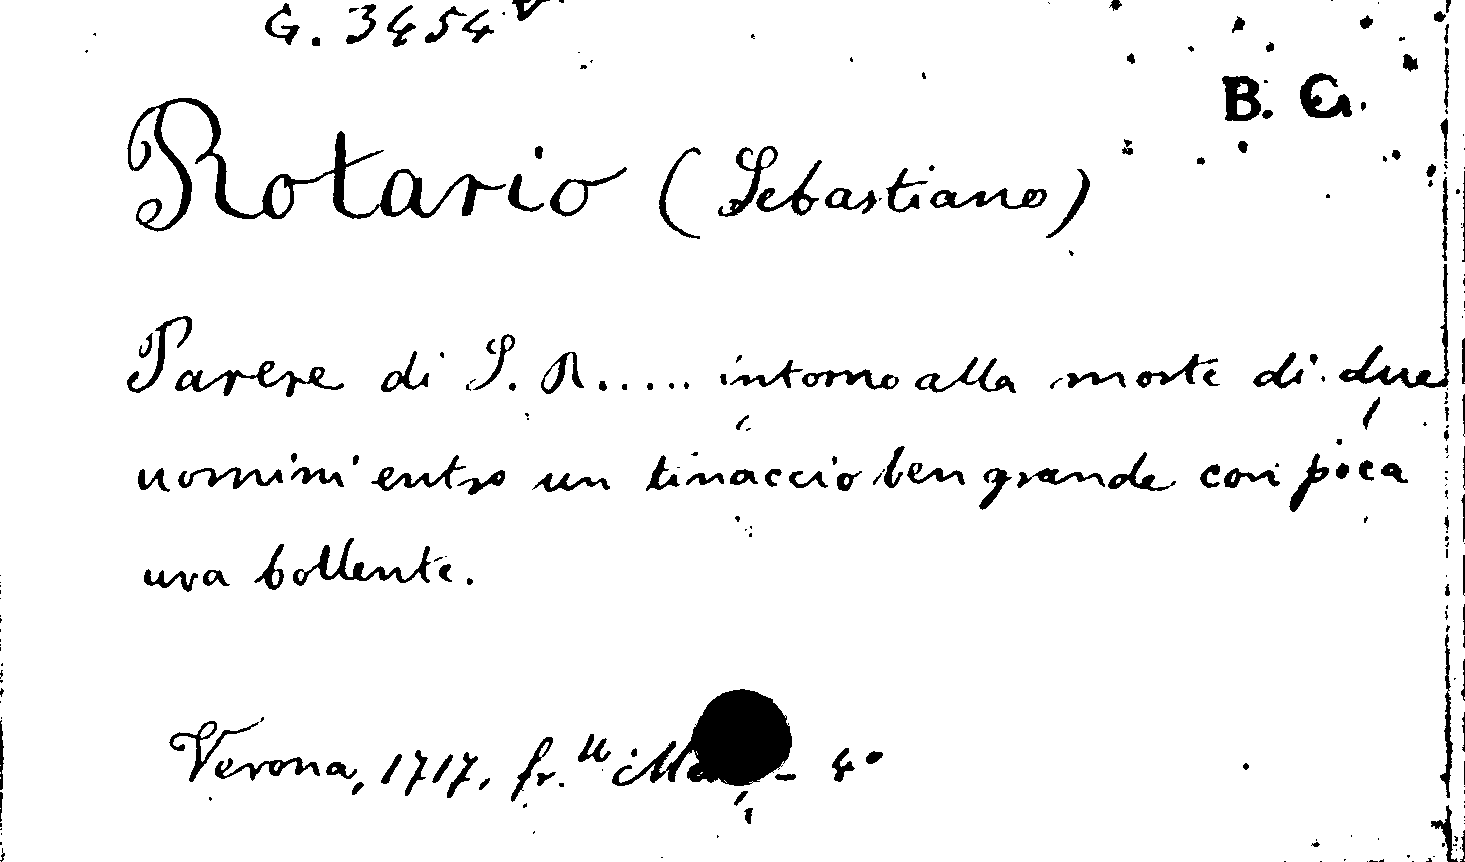 G. 3454
B. G.
Rotario (Sebastiano)
Parere di S. R..... intorno alla morte di due
uomini entro un tinaccio ben grande con poca
uva bollente.
Verona, 1717, fr.lli - 4°